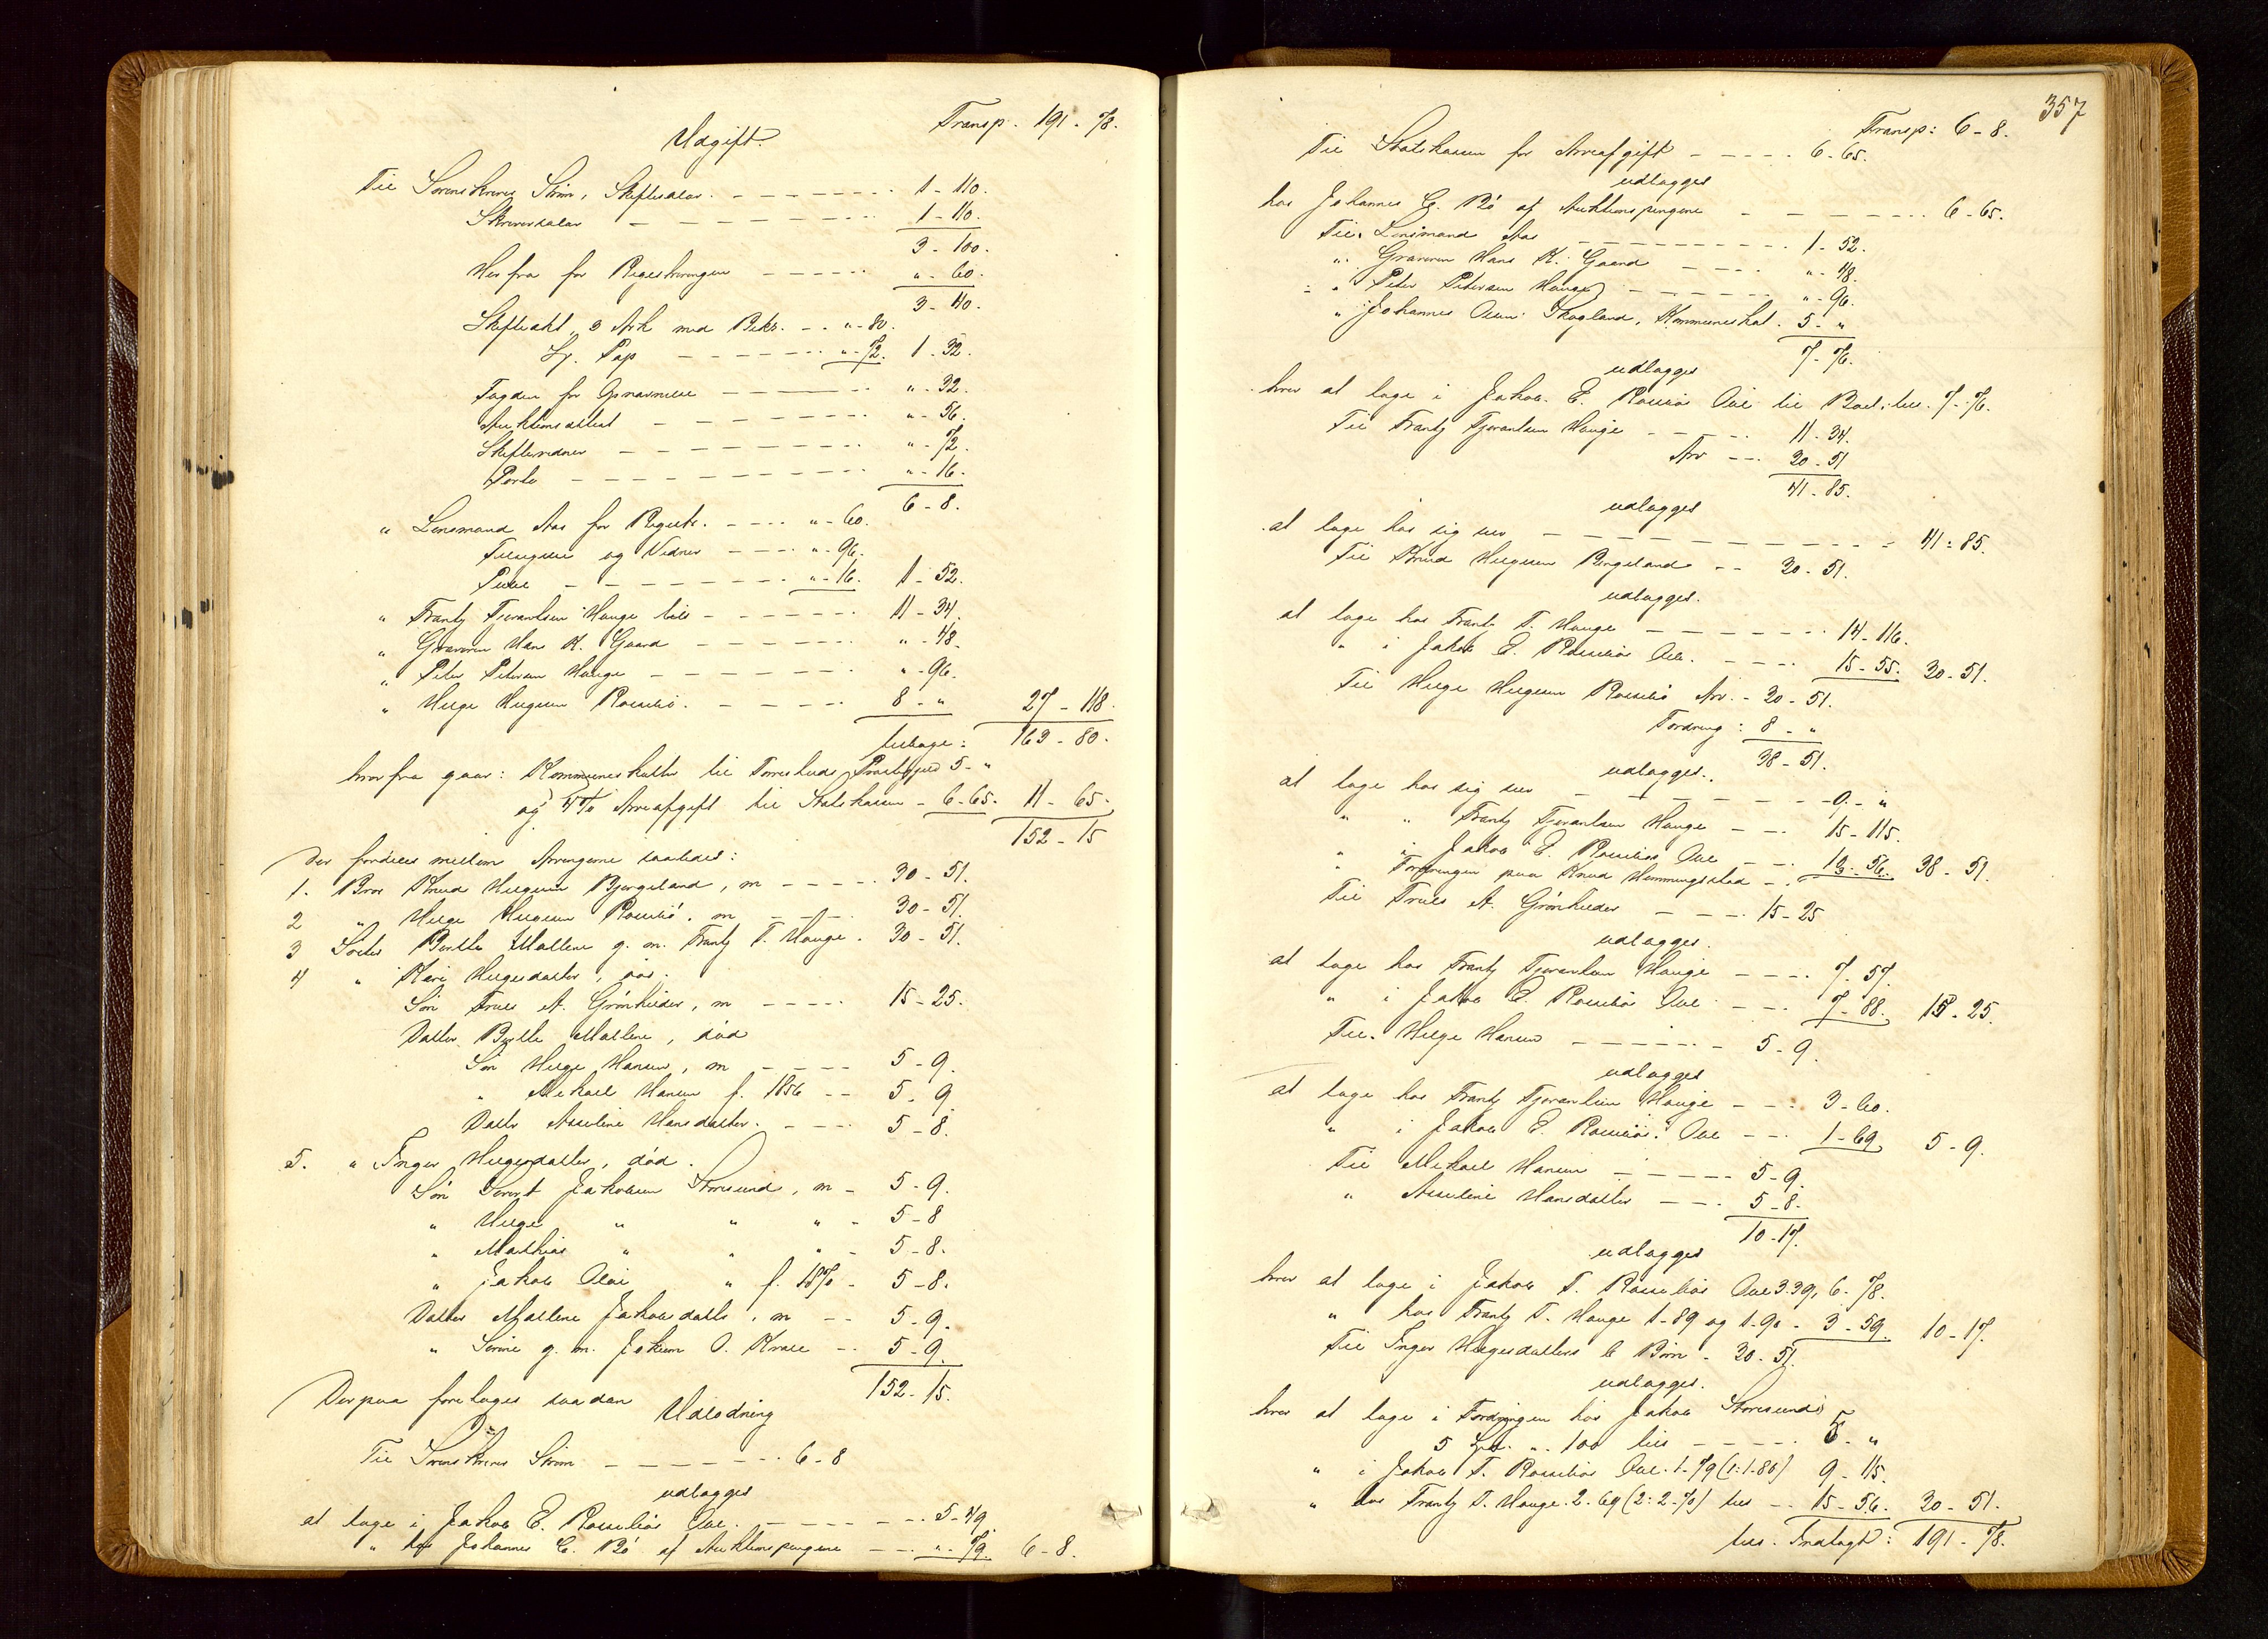 Transp. 191 - 78.
Udgift.
Til Sorenskriver Strøm, Skiftesalær. - - - 1 - 110.
Skriversalær - - - 1 - 110.
3 - 100.
Herfra for Registreringen - - - " - 60.
3 - 40.
Skifteakt, 3 Ark med Bekr. - - " - 80.
St. Pap - - - " - 72. 1 - 32.
Fogden for Opnævnelse - - - " - 32.
Auktionsattest - - - " - 56.
Skiftevidner - - - " - 72.
Porto - - - " - 16.
6 - 8.
" Lensmand Aas for Registr. - - - " - 60.
Tilsigelse og Vidner - - - " - 96.
- - - " - 16. 1 - 52.
" Frantz Tjerantsen Hauge tils - - - 11 - 34.
" Graveren Hans K. Gaard - - - " - 48.
" Peter Petersen Hauge - - - " - 96.
" Helge Helgesen Rossebø. - - - 8 - " 27 - 118.
tilbage: 163 - 80.
hvorfra gaar: Kommuneskatter til Torvestads Præstegjeld 5 - "
og 4% Arveafgift til Statskassen - 6 - 65. 11 - 65.
152 - 15
Der fordeles mellem Arvingerne saaledes:
1. Bror Knud Helgesen Bjergeland, m - - - 30 - 51.
2 " Helge Helgesen Rossebø. m - - - 30 - 51.
3 Søster Berthe Mallene g. m. Frantz T. Hauge. 30 - 51.
4 " Kari Helgesdatter, død.
Søn Truls A. Grønhieder, m - - - 15 - 25.
Datter Berthe Mallene, død
Søn Helge Hansen, m - - - 5 - 9.
" Mikael Hansen f. 1856 - - 5 - 9.
Dattr Asseline Hansdatter. - - - 5 - 8.
5. " Inger Helgesdatter, død.
Søn Sivert Jakobsen Storesund, m - 5 - 9.
" Helge " " " - 5 - 8
" Mathias " " " - 5 - 8.
" Jakob Olai " f. 1870 - 5 - 8.
Datter Mallene Jakobsdattr, m - - 5 - 9.
" Serine g. m. Jokum O. Kvale - - 5 - 9.
152 - 15.
Derpaa foretages saadan
Udlodning
Til Sorenskriver Strøm - - - 6 - 8
udlægges
at tage i Jakob E. Rossebøs Obl. - - - 5 - 49.
" hos Johannes C. Bø af Auktionspengene - - " - 79. 6 - 8.
357
Transp: 6 - 8.
Til Statskassen for Arveafgift - - - 6 - 65.
udlægges
hos Johannes C. Bø af Auktionspengene - - - 6 - 65.
Til Lensmand Aas - - - 1 - 52.
" Graveren Hans K. Gaard - - - " - 48.
" Peter Petersen Hauge - - - " - 96.
" Johannes Skogland, Kommuneskat. 5 - "
7 - 76.
udlægges
hver at tage i Jakob. E. Rossebøs Obl. til Bel. tils. 7 - 76.
Til Frantz Tjerantsen Hauge - - - 11 - 34.
Arv - - - 30 - 51
41 - 85.
udlægges
at tage hos sig selv - - - 41 - 85.
Til Knud Helgesen Bergeland - - 30 - 51.
udlægges.
at tage hos Frantz T. Hauge - - - 14 - 116.
" i Jakob E. Rossebøs Obl. - - - 15 - 55. 30 - 51.
Til Helge Helgesen Rossebø Arv. - 30 - 51.
Fordring: 8 - "
38 - 51.
udlægges.
at tage hos sig selv - - - 9 - "
" " Frantz Tjerantsen Hauge - - - 15 - 115.
" i Jakob E. Rossebøs Obl - - - 13 - 56. 38 - 51.
" Fordringen paa Knud Hemmingstad - -
Til Truls A. Grønhieder - - - 15 - 25
udlægges.
at tage hos Frantz Tjerantsen Hauge - - - 7 - 57.
" i Jakob E. Rossebøs Obl - - - 7 - 88. 15 - 25.
Til Helge Hansen - - - 5 - 9.
udlægges
at tage hos Frantz Tjerantsen Hauge - - - 3 - 60.
" i Jakob E. Rossebøs Obl - - - 1 - 69. 5 - 9.
Til Mikael Hansen - - - 5 - 9.
" Asseline Hansdatter - - - 5 - 8.
10 - 17.
udlægges
hver at tage i Jakob T. Rossebøs Obl 3.39, 6 - 78.
" hos Frantz T. Hauge 1-89 og 1-90 - 3 - 59. 10 - 17.
Til Inger Helgesdatters 6 Børn - 30 - 51.
udlægges.
hver at tage i Fordringen hos Jakob Storesund
5 " 100 tils - - - 5 - "
" i Jakob T. Rossebøs Obl. 1-79 (1: 1-80) 9 - 115.
" hos Frantz T. Hauge. 2-69 (2: 2-70) tils - - 15 - 56. 30 - 51.
tils. Indtægt: 191 - 78.